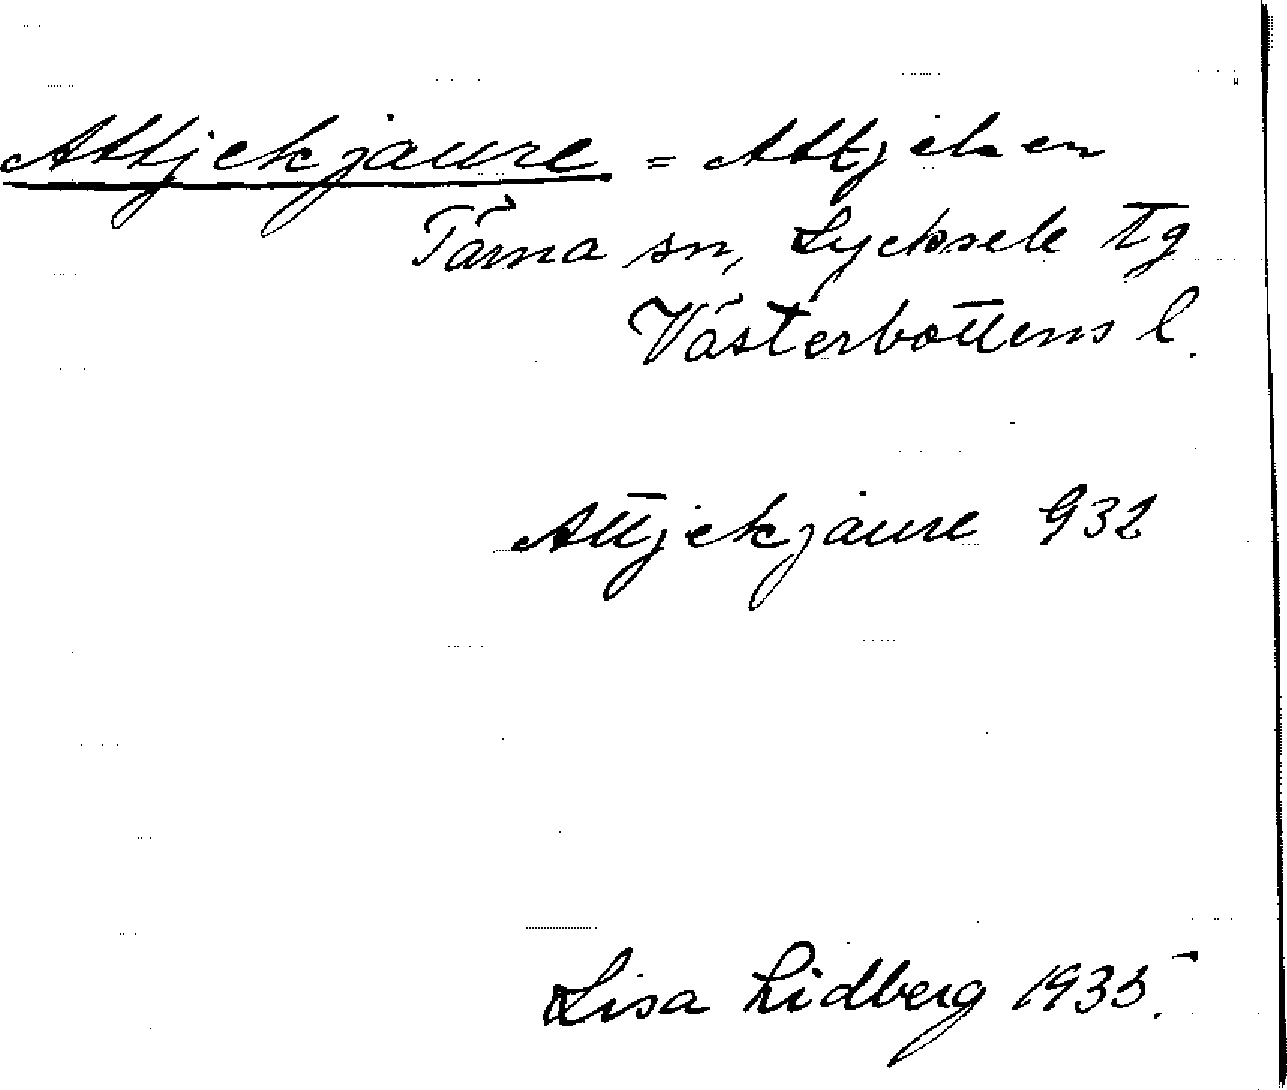 Attjekjaure = Attjeken
Tärna sn, Lycksele tg
Västerbottens l.
Attjekjaure 932
Lisa Lidberg 1935.